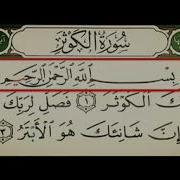 سُورَةُ الكَوْثَرِ
بِسْمِ ٱللَّهِ ٱلرَّحْمَٰنِ ٱلرَّحِيمِ
كَ ٱلْكَوْثَرَ ١ فَصَلِّ لِرَبِّكَ
إِنَّ شَانِئَكَ هُوَ ٱلْأَبْتَرُ ٣